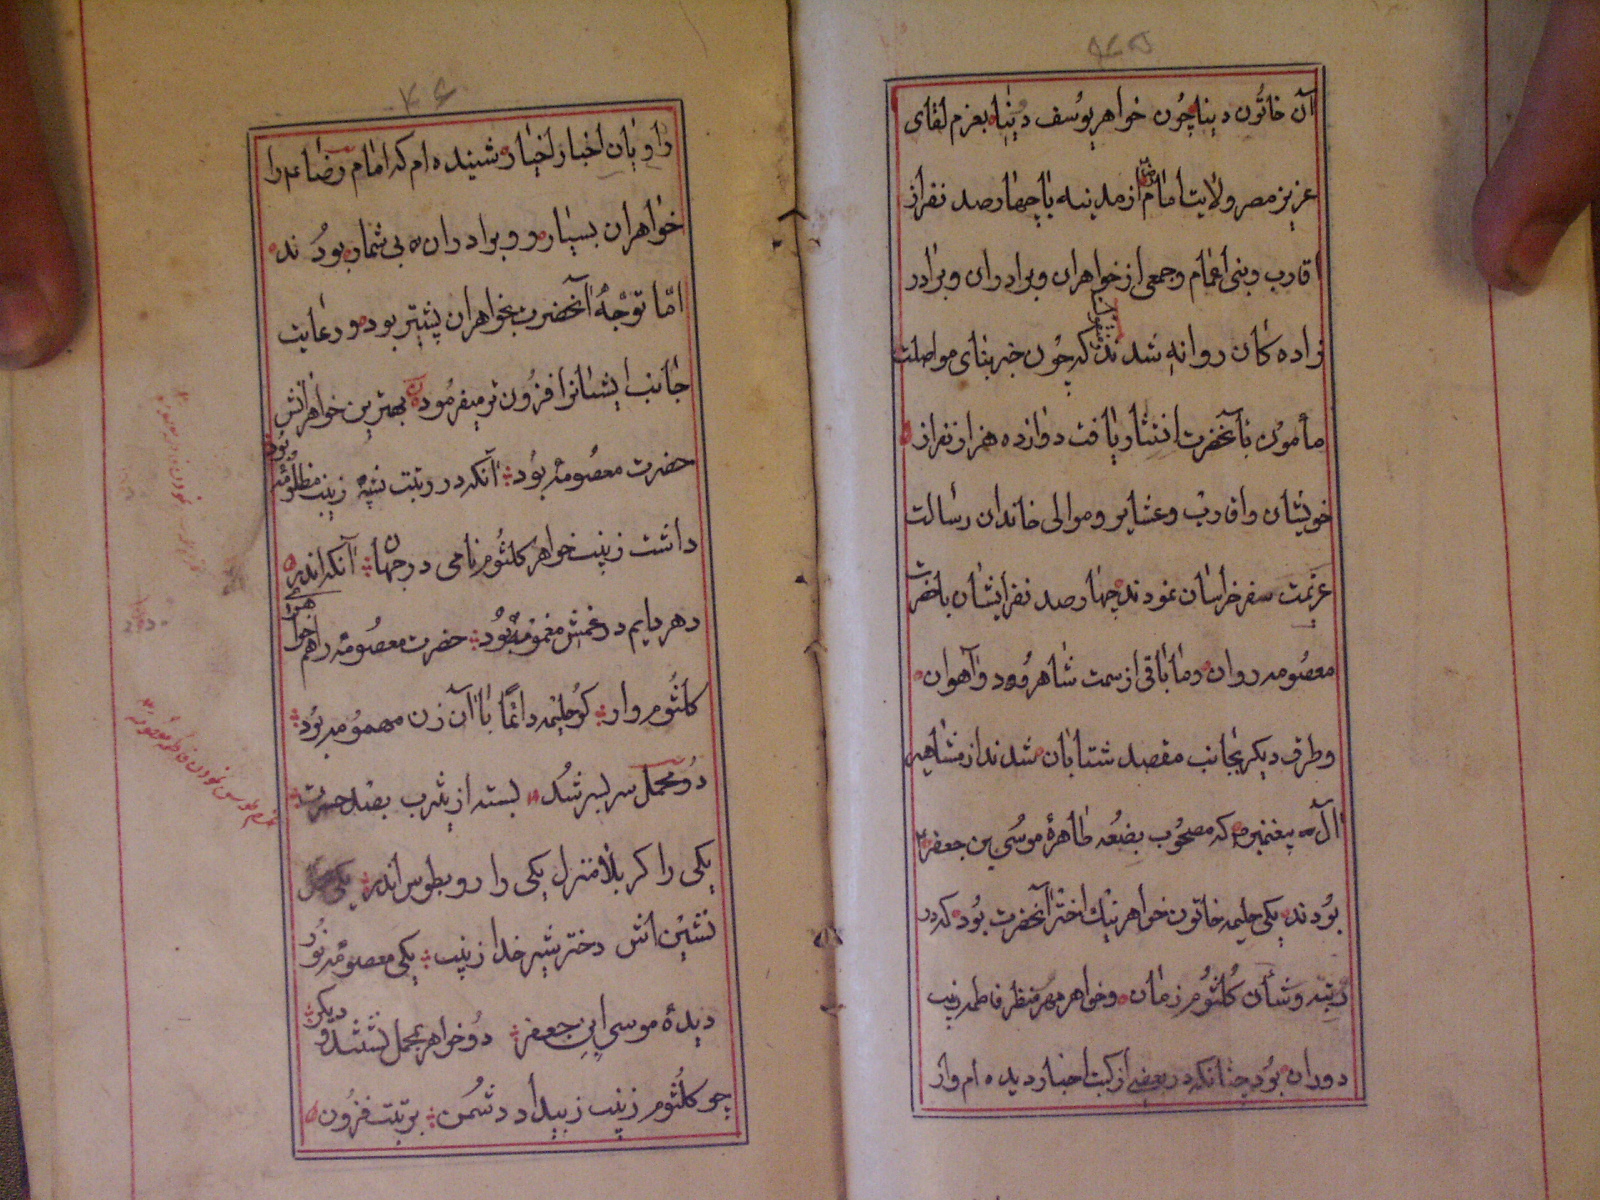 آن خاتون دینا چون خواهر یوسف دینا بعزم لقای
عزیز مصر ولایت امام از مدینه با چهارصد نفر از
اقارب و بنی اعمام و جمعی از خواهران و برادران و برادر
زاده کان روانه شدند که چون خبر بنای مواصلت
مأمون با آنحضرت انتشار یافت دوازده هزار نفر از
خویشان و اقارب و عشایر و موالی خاندان رسالت
عزیمت سفر خراسان نمودند چهارصد نفر ایشان با حضرت
معصومه روان و مابقی از سمت شاهرود و آهوان
و طرق دیگر بجانب مقصد شتابان شدند از مشاهیر
آل پیغمبر که مصحوب بضعه طاهرهٔ موسی بن جعفر
بودند یکی حلیمه خاتون خواهر نیک اختر آنحضرت بود که در
رتبه و شأن کلثوم زمان و خواهر مهر منظر فاطمه زینب
دوران بود چنانکه در بعضی از کتب اخبار دیده ام و از
راویان اخبار اخیار شنیده ام که امام رضا ع را
خواهران بسیار و برادران بی شمار بودند
امّا توجّه آنحضرت بخواهران بیشتر بود و رعایت
جانب ایشانرا افزون تر میفرمود بهترین خواهرانش
حضرت معصومه بود آنکه در رتبت شبیه زینب مظلومه بود
داشت زینب خواهر کلثوم نامی در جهان آنکه اندر
دهر دایم در غمش مغمومه بود حضرت معصومه را هم خواهری
کلثوم وار کو حلیمه دائمًا با آن زن مهمومه بود
دو محمل سربسر شد بسته از یثرب بصد حسرت
یکی را کربلا منزل یکی را رو بطوس اندر یکی محمل
نشین اش دختر شیر خدا زینب یکی معصومه نور
دیدهٔ موسی ابن جعفر دو خواهر بمحمل نشستند و دیگر
چو کلثوم زینب ز بیداد دشمن برتبت فزون